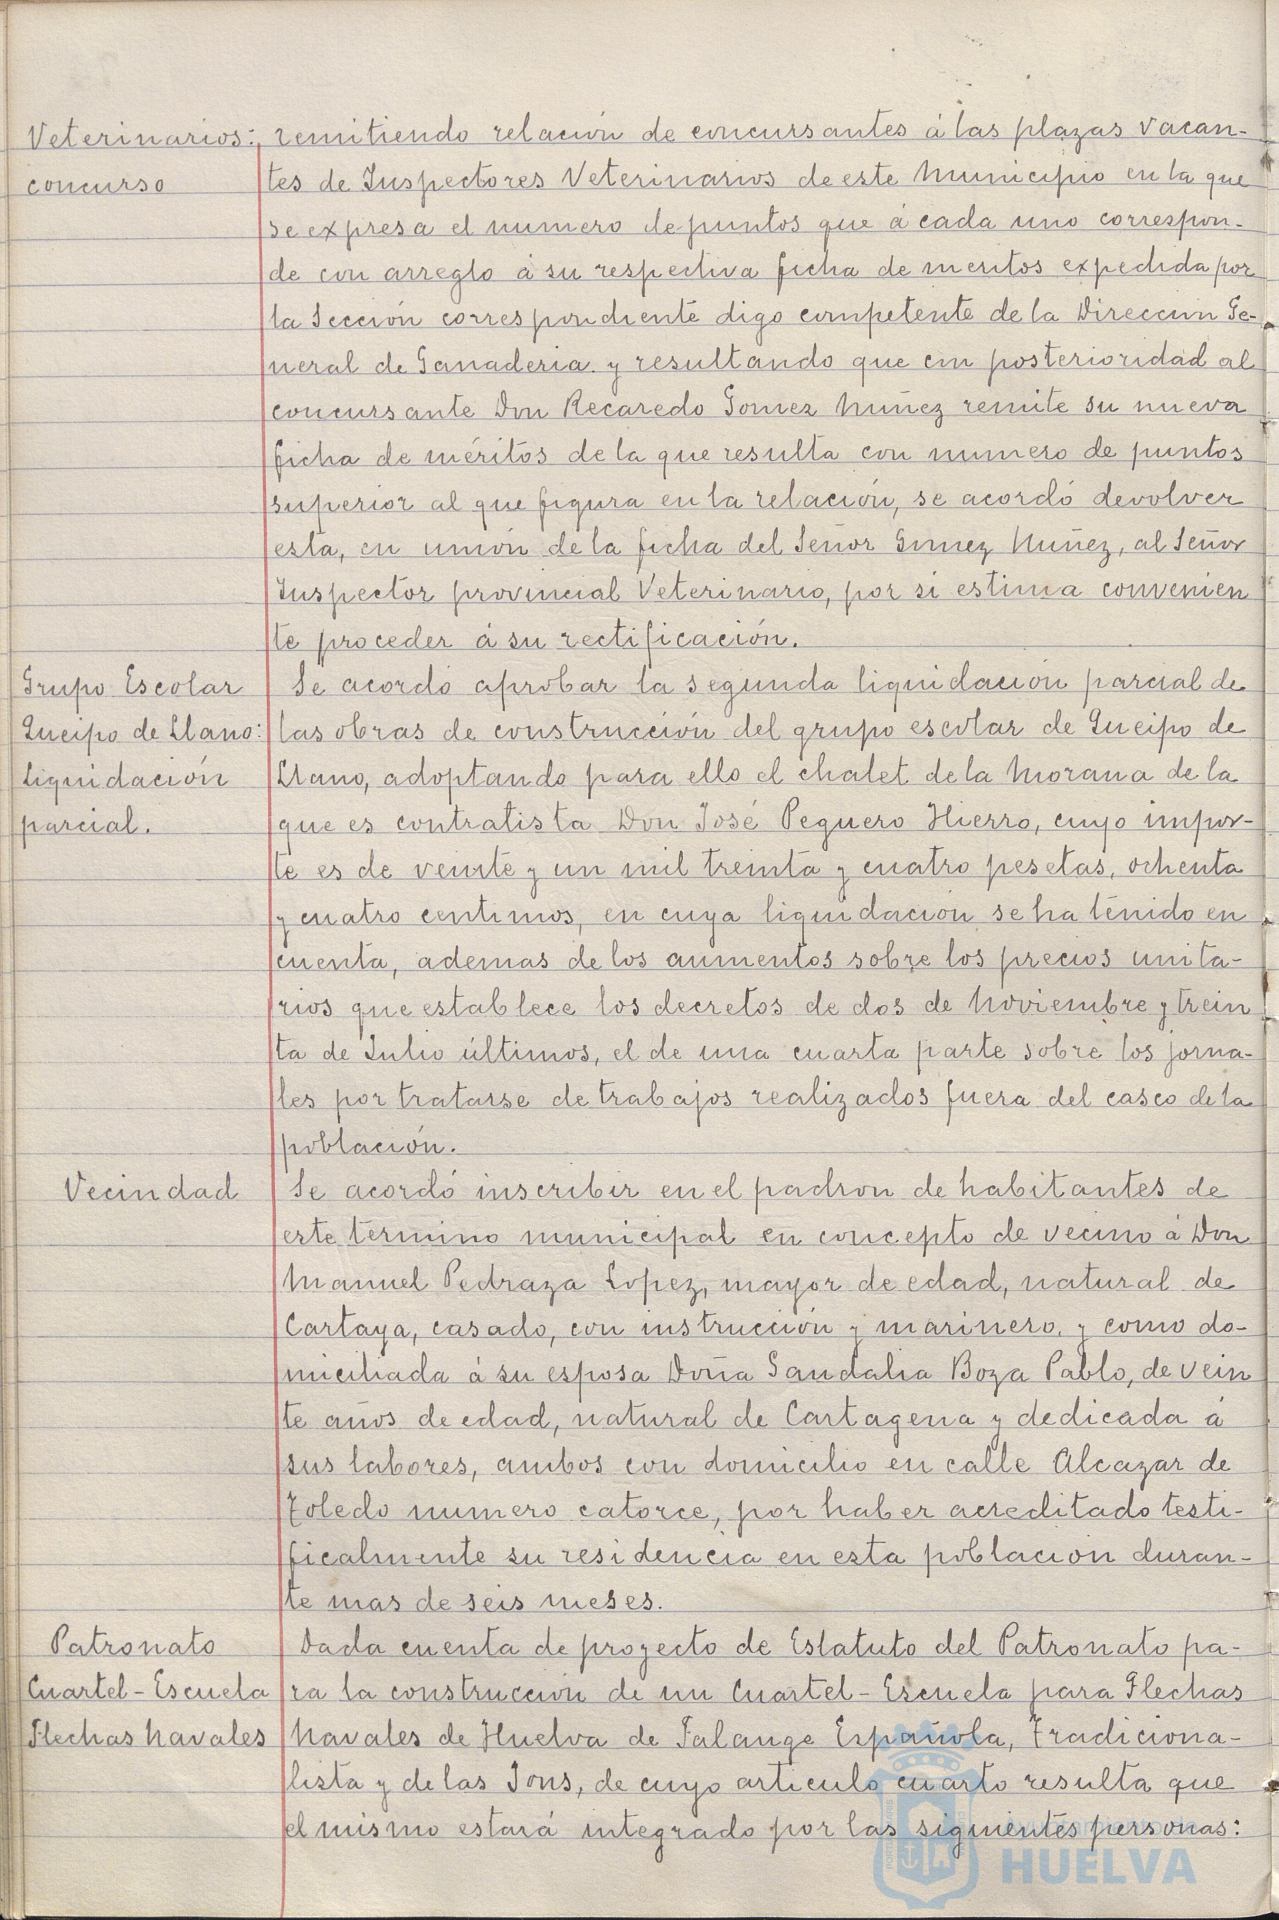 Veterinarios: remitiendo relación de concursantes á las plazas vacan-
concurso tes de Inspectores Veterinarios de este Municipio en la que
se expresa el numero de puntos que á cada uno correspon-
de con arreglo á su respectiva ficha de meritos expedida por
la Sección correspondiente digo competente de la Direccion Ge-
neral de Ganaderia. y resultando que con posterioridad el
concursante Don Recaredo Gomez Nuñez remite su nueva
ficha de méritos de la que resulta con numero de puntos
superior al que figura en la relación, se acordó devolver
esta, en unión de la ficha del Señor Gomez Nuñez, al Señor
Inspector provincial Veterinario, por si estima convenien
te proceder á su rectificación.
Grupo Escolar Se acordó aprobar la segunda liquidación parcial de
Queipo de Llano: las obras de construcción del grupo escolar de Queipo de
liquidación Llano, adoptando para ello el chalet de la Morana de la
parcial. que es contratista Don José Peguero Hierro, cuyo impor-
te es de veinte y un mil treinta y cuatro pesetas, ochenta
y cuatro centimos, en cuya liquidacion se ha tenido en
cuenta, ademas de los aumentos sobre los precios unita-
rios que establece los decretos de dos de Noviembre y trein
ta de Julio últimos, el de una cuarta parte sobre los jorna-
les por tratarse de trabajos realizados fuera del casco de la
población.
Vecindad Se acordó inscribir en el padron de habitantes de
este termino municipal en concepto de vecino á Don
Manuel Pedraza Lopez, mayor de edad, natural de
Cartaya, casado, con instrucción y marinero, y como do-
miciliada á su esposa Doña Sandalia Boza Pablo, de vein
te años de edad, natural de Cartagena y dedicada á
sus labores, ambos con domicilio en calle Alcazar de
Toledo numero catorce, por haber acreditado testi-
ficalmente su residencia en esta poblacion duran-
te mas de seis meses.
Patronato Dada cuenta de proyecto de Estatuto del Patronato pa-
Cuartel-Escuela ra la construccion de un Cuartel-Escuela para Flechas
Flechas Navales Navales de Huelva de Falange Española, Tradiciona-
lista y de las Jons, de cuyo articulo cuarto resulta que
el mismo estará integrado por las siguientes personas:
HUELVA